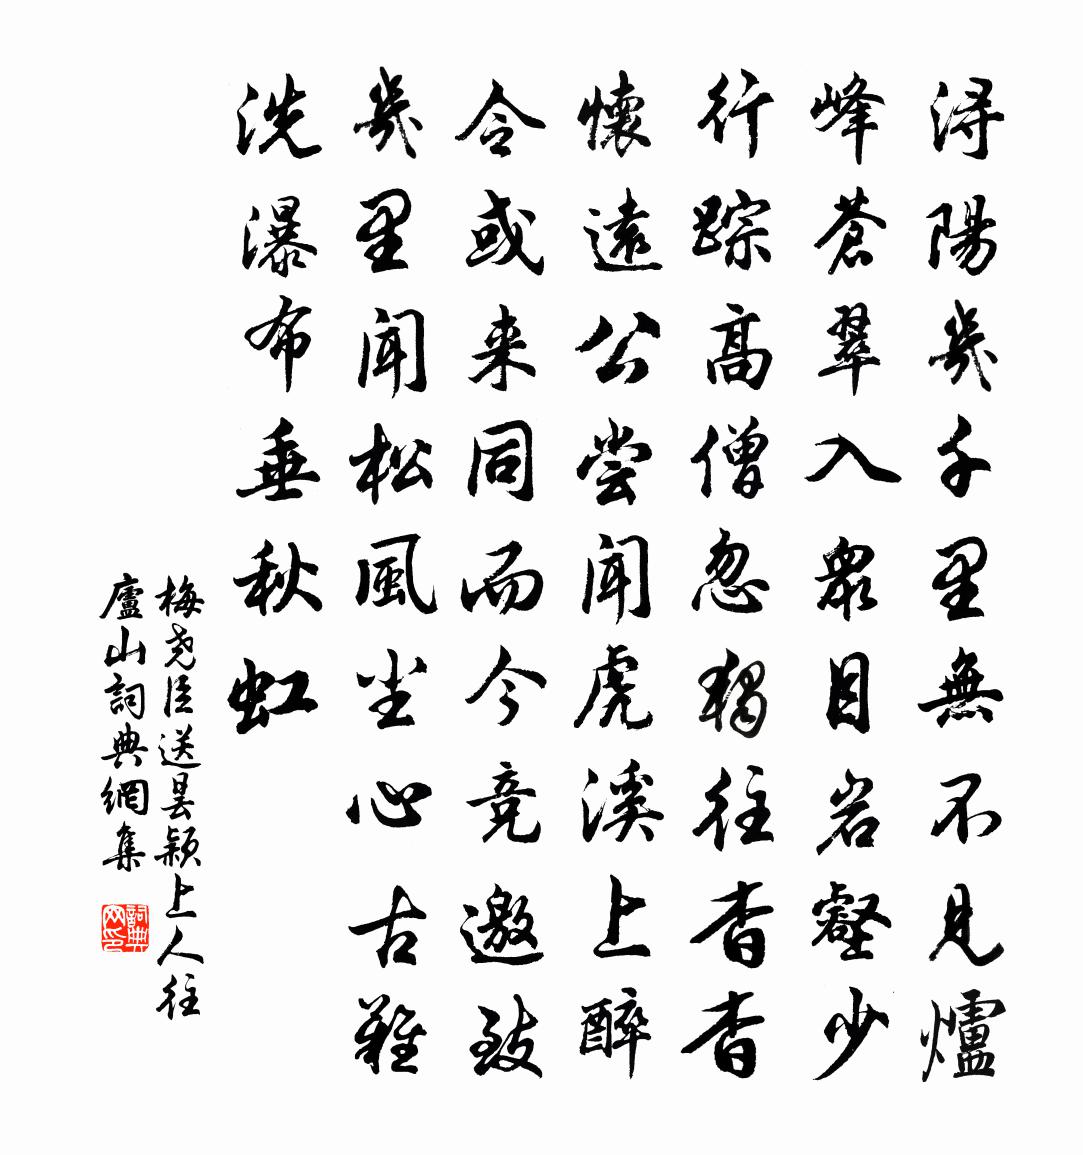 浔陽幾千里無不見爐
峰蒼翠入衆目岩壑少
行踪高僧忽獨往杳杳
懷遠公嘗聞虎溪上醉
令或来同而今竞邀致
幾里闻松風坐心古難
洗瀑布垂秋虹
梅尧臣送昙颖上人往
廬山詞典網集
詞典网印